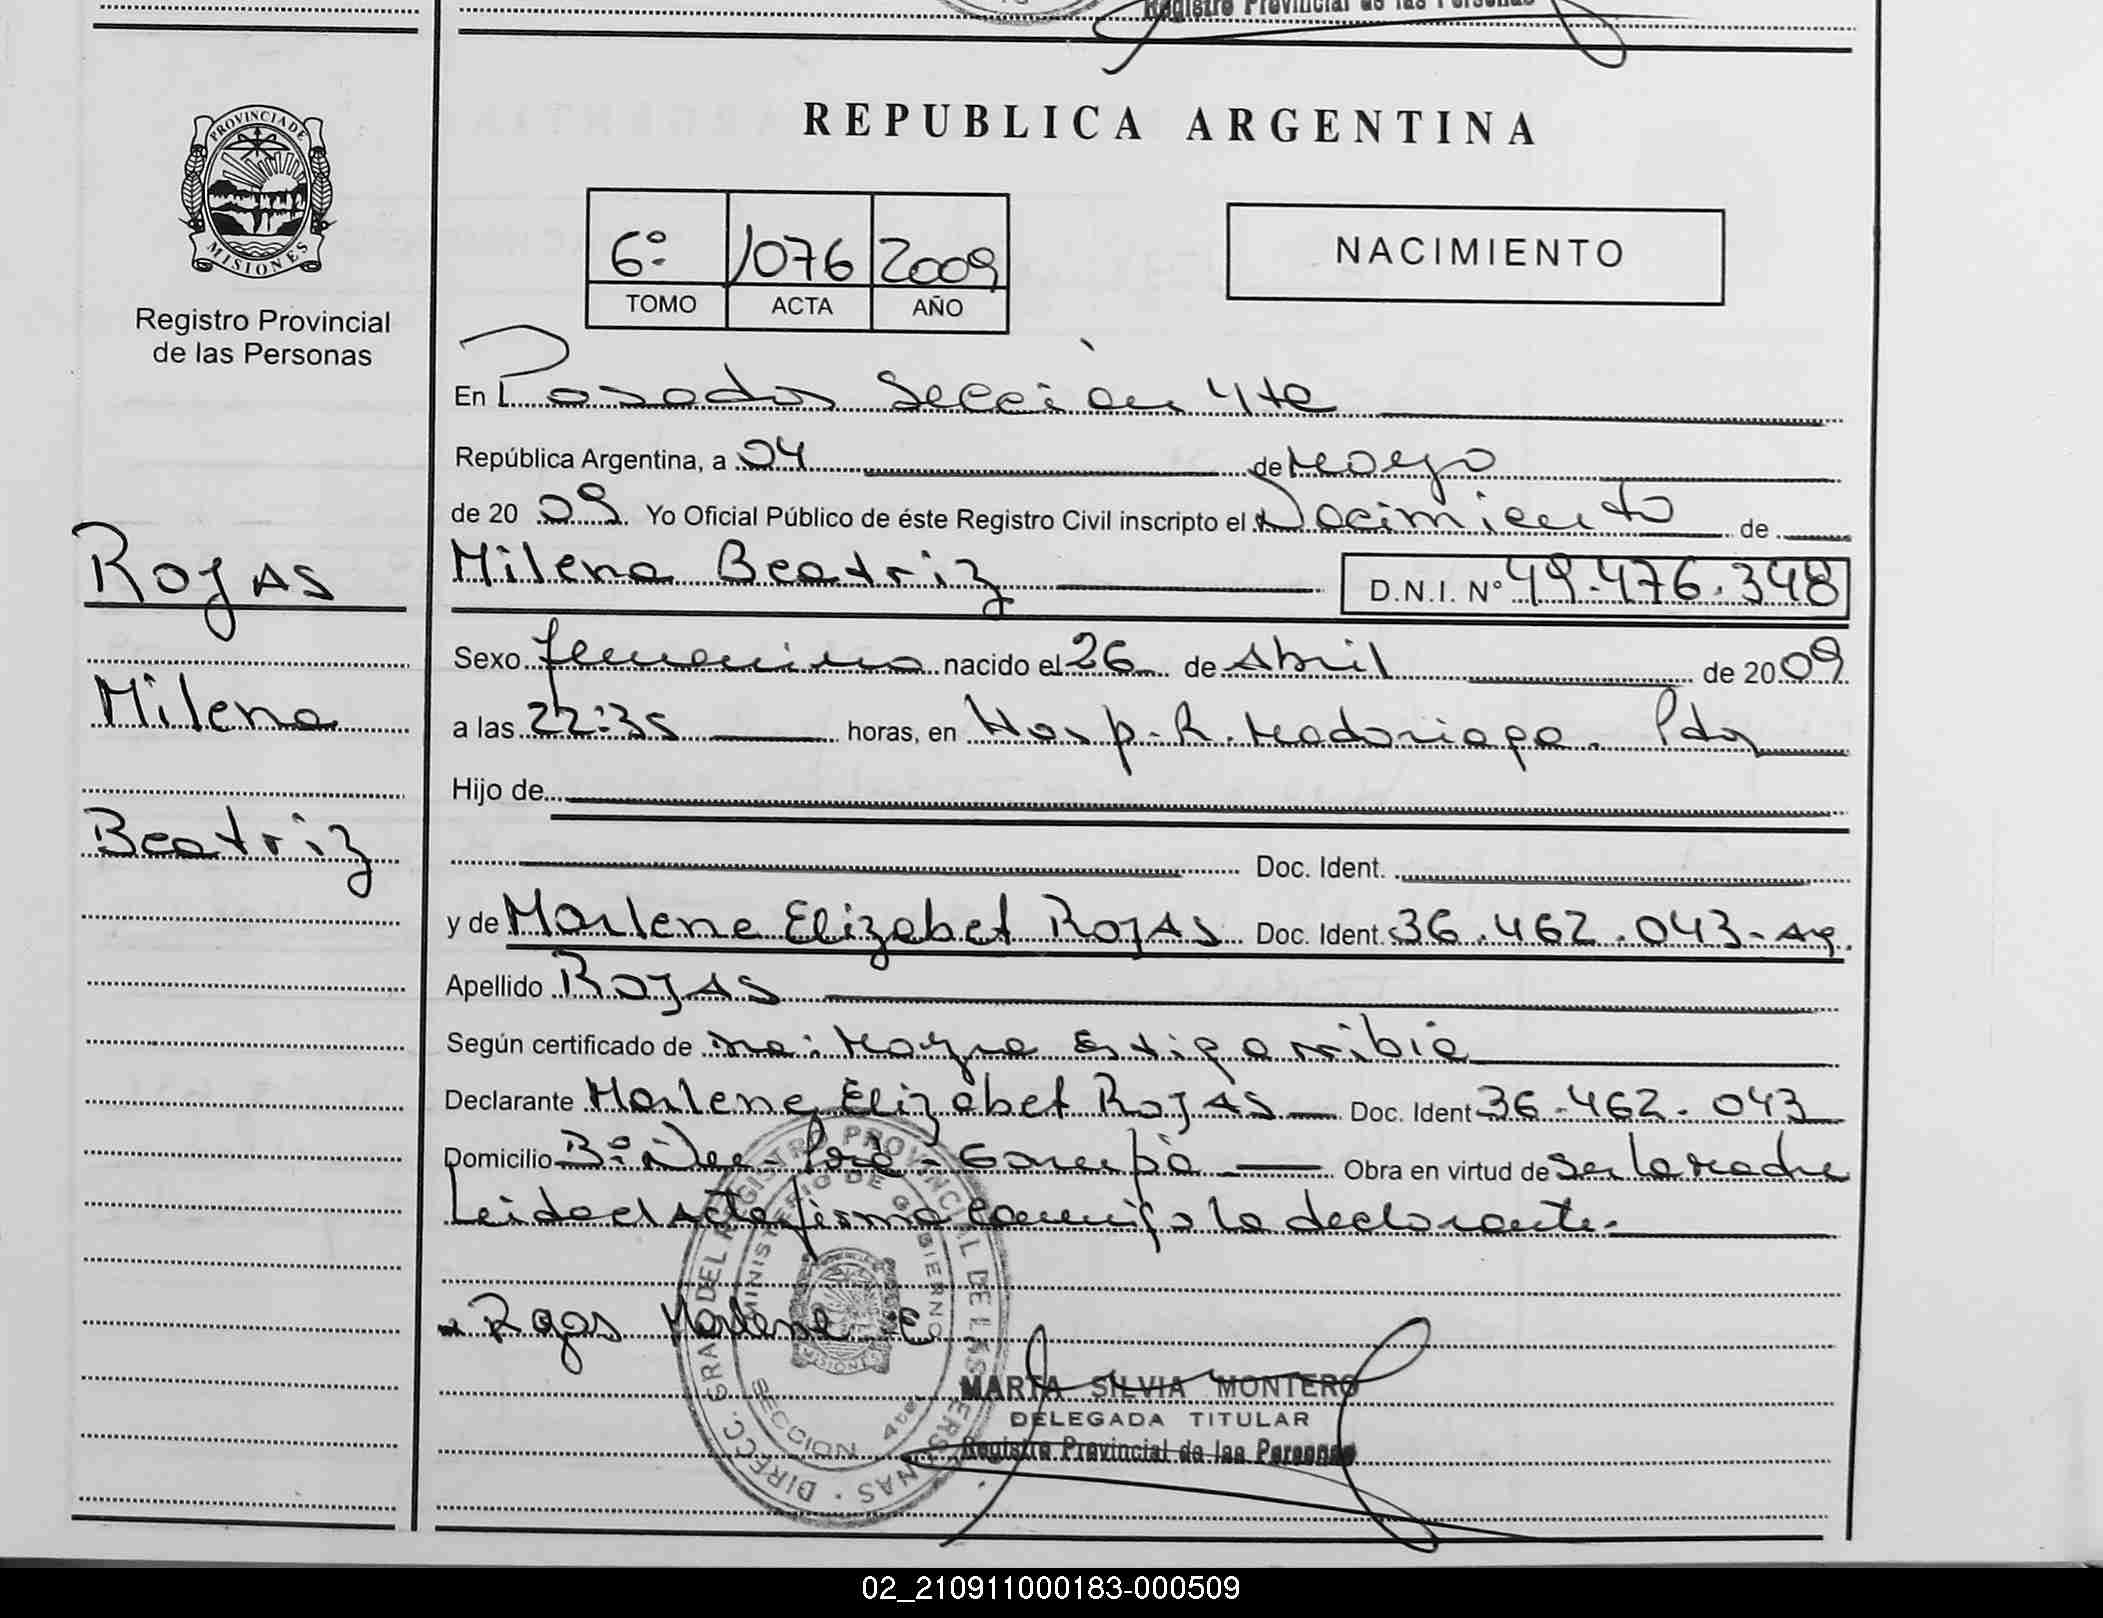 Registro Provincial de las Personas
PROVINCIA DE
MISIONES
Registro Provincial
de las Personas
REPUBLICA ARGENTINA
6º 1076 2009
TOMO ACTA AÑO
NACIMIENTO
En Posadas Sección 4ta
República Argentina, a 04 de Mayo
de 2009 Yo Oficial Público de éste Registro Civil inscripto el Nacimiento de
Milena Beatriz D.N.I. Nº 49.476.348
Sexo femenino nacido el 26 de Abril de 2009
a las 22:35 horas, en Hosp. R. Madariaga. Pdas
Hijo de
Doc. Ident.
y de Marlene Elizabet ROJAS Doc. Ident. 36.462.043-Ag.
Apellido ROJAS
Según certificado de Mayra Estigarribia
Declarante Marlene Elizabet ROJAS Doc. Ident 36.462.043
Domicilio Bº José - Garupá Obra en virtud de ser la madre
Leida el Acta firma conmigo la declarante.
Rojas Marlene E
ROJAS
Milena
Beatriz
DIRECC. GRAL DEL REGISTRO PROVINCIAL DE LAS PERSONAS
MINISTERIO DE GOBIERNO
MISIONES
SECCION 4ta
MARTA SILVIA MONTERO
DELEGADA TITULAR
Registro Provincial de las Personas
02_210911000183-000509